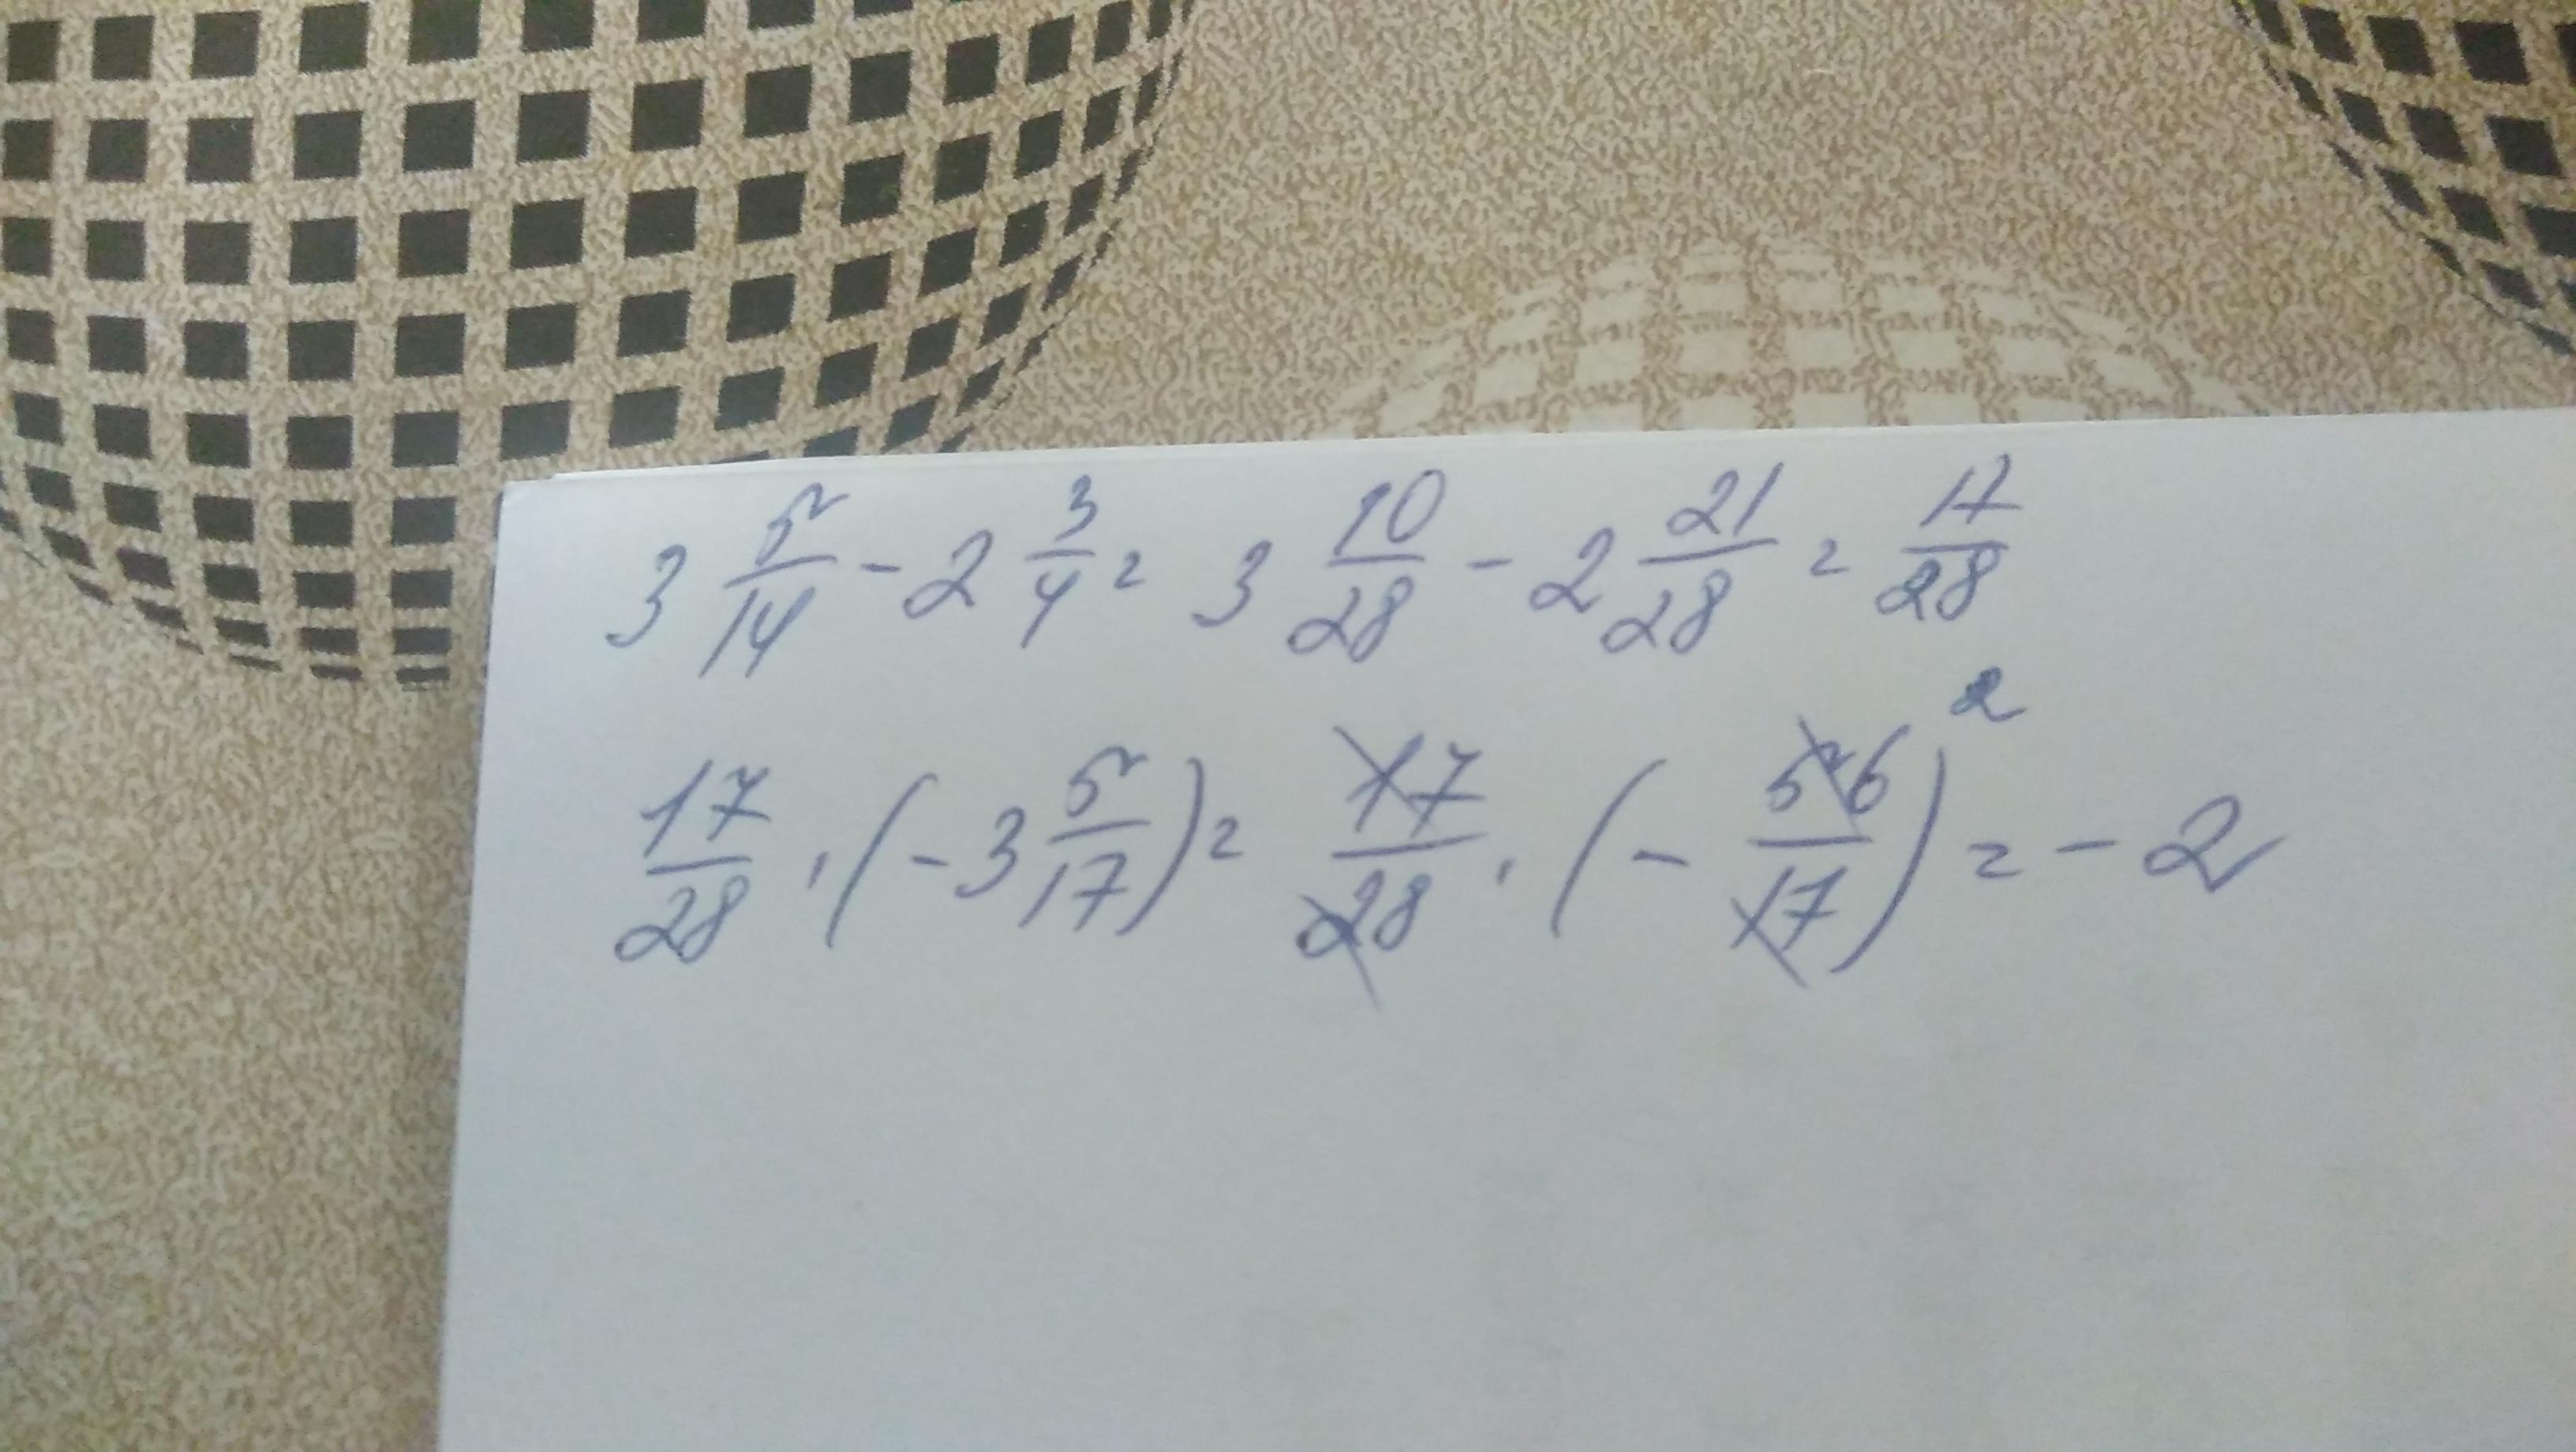 3 5/14 - 2 3/4 = 3 10/28 - 2 21/28 = 17/28
17/28 · (-3 5/17) = 17/28 · (- 56/17) 2 = - 2